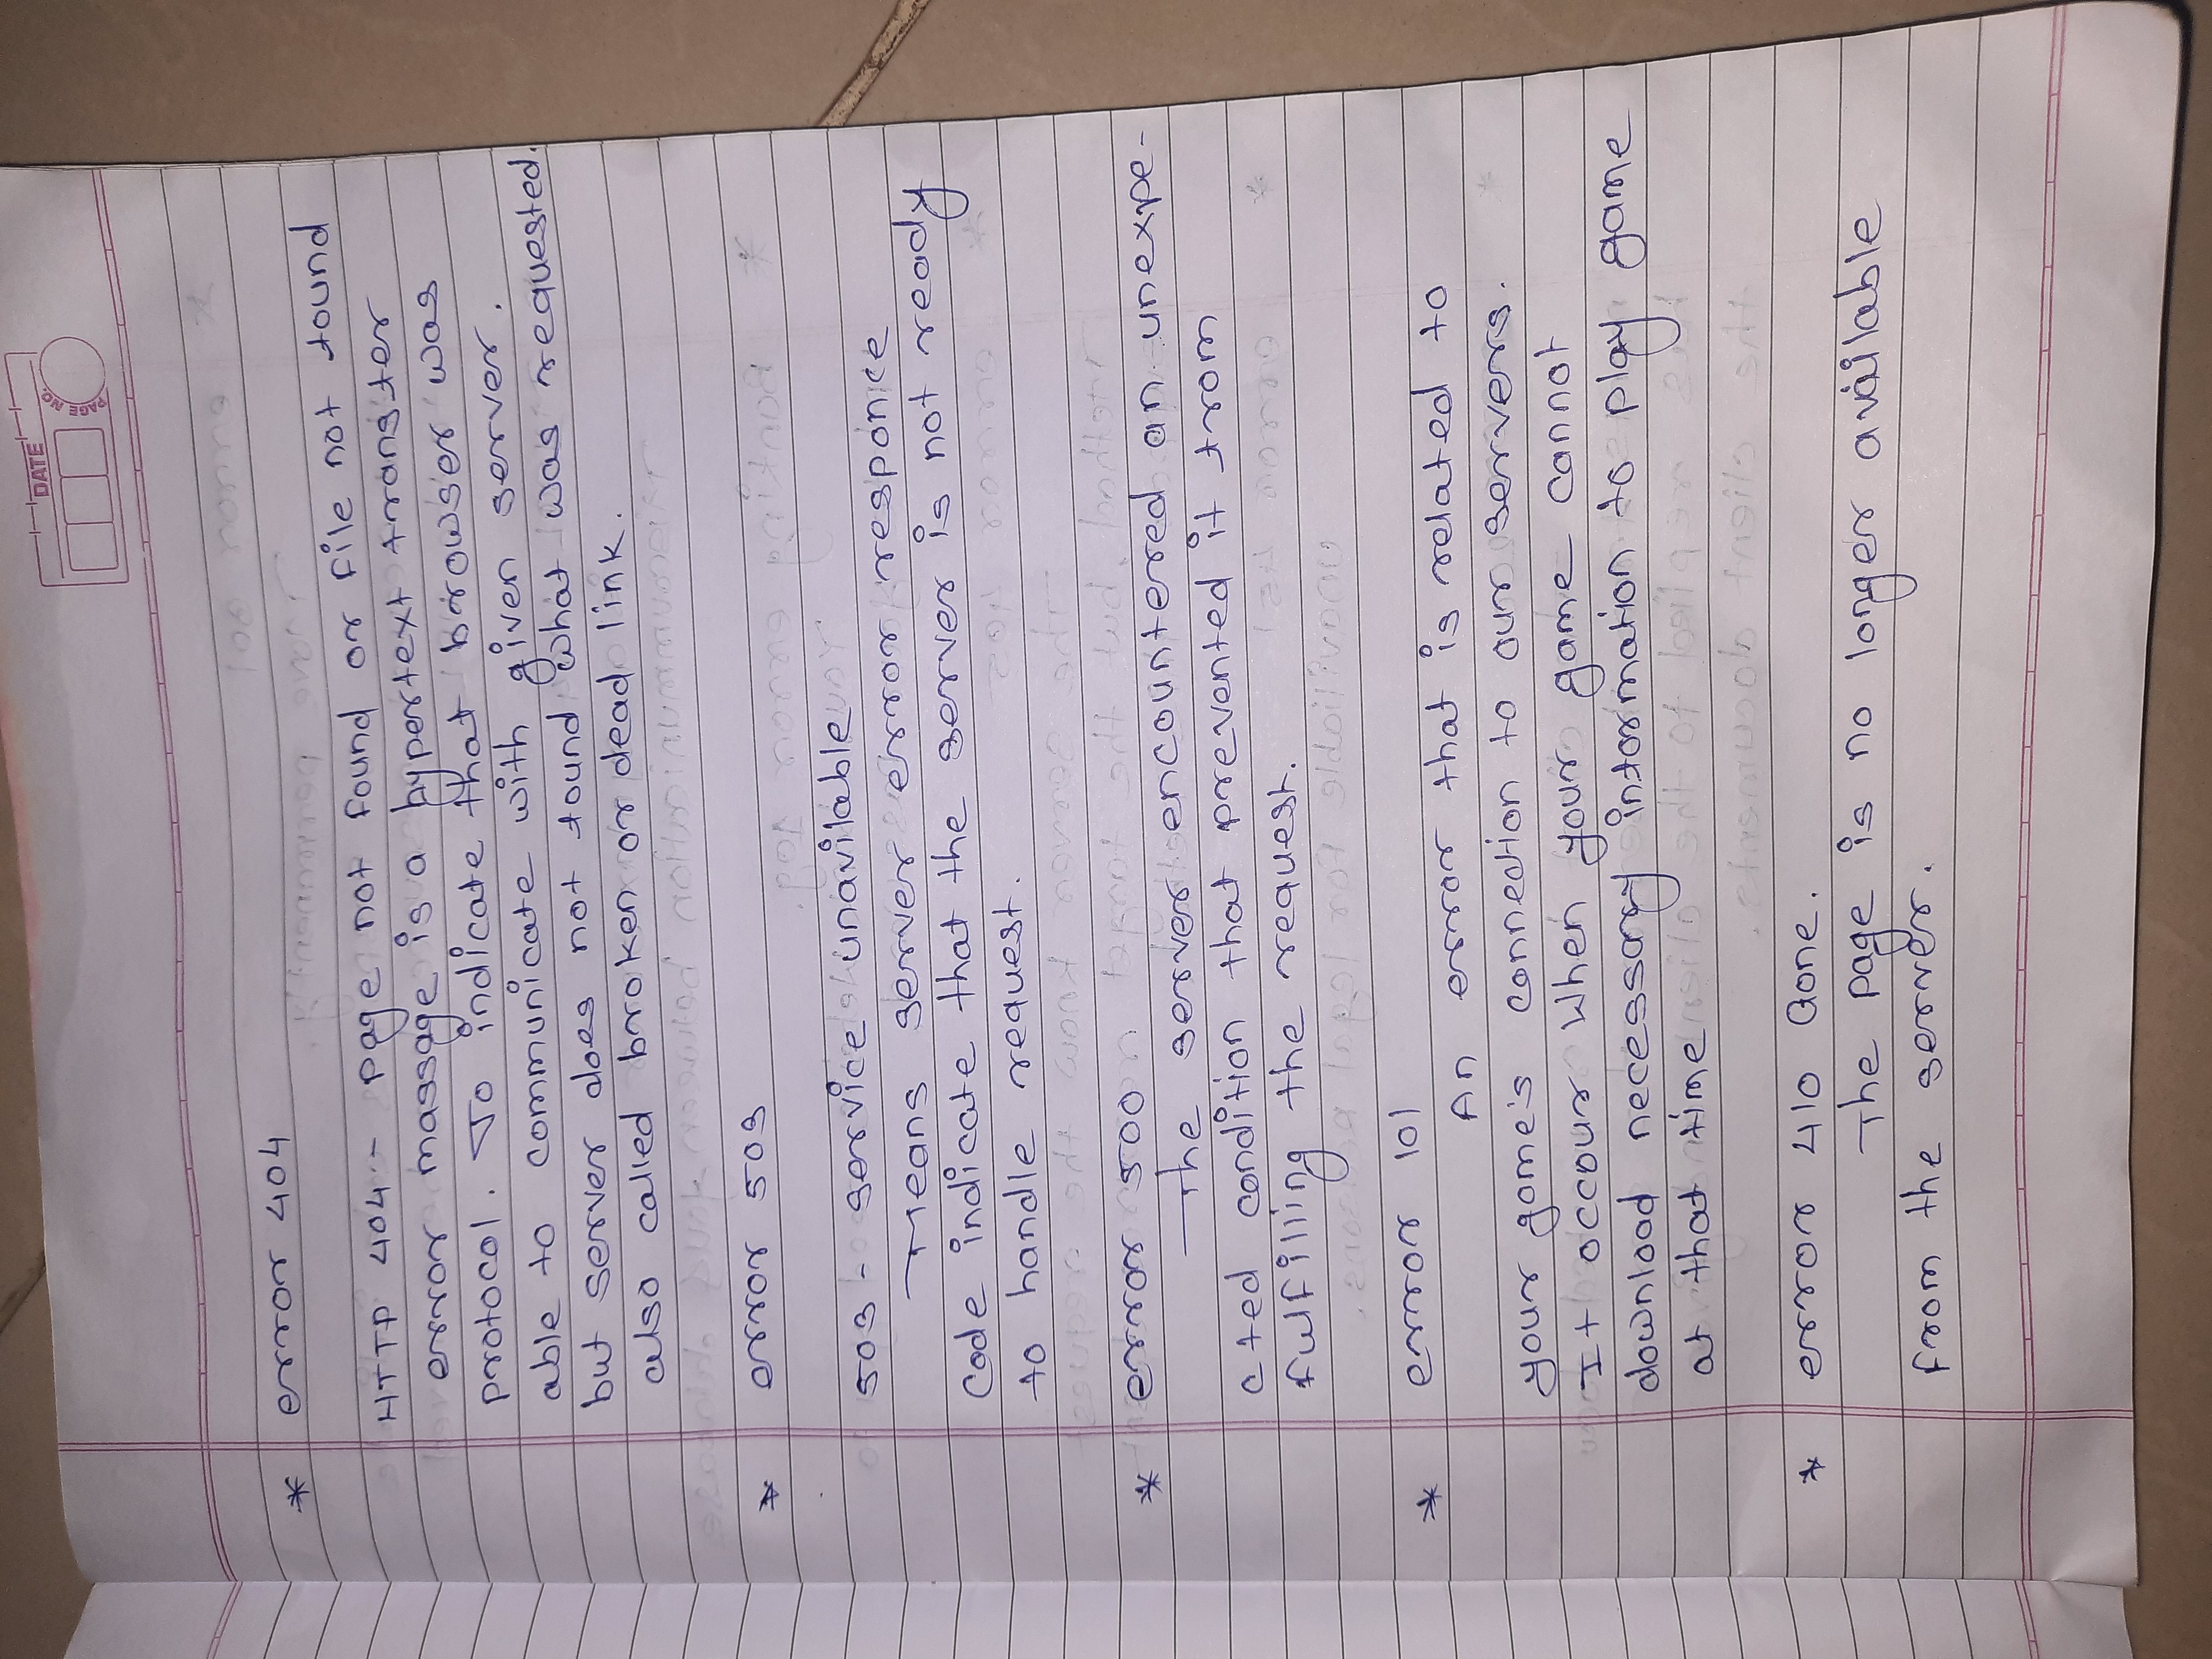 DATE
PAGE NO.
* error 404
HTTP 404 :- page not found or file not found
error massage is a hypertext transfer
protocol. To indicate that browser was
able to communicate with given server.
but server does not found what was requested.
also called broken or dead link.
* error 503
503 - service unavilable
Means server error responce
code indicate that the server is not ready
to handle request.
* error 500
The server encountered an unexpe-
cted condition that prevented it from
fulfilling the request.
* error 101
An error that is related to
your game's connection to our servers.
It occour When your game cannot
download necessary information to play game
at that time
* error 410 Gone.
The page is no longer available
from the server.